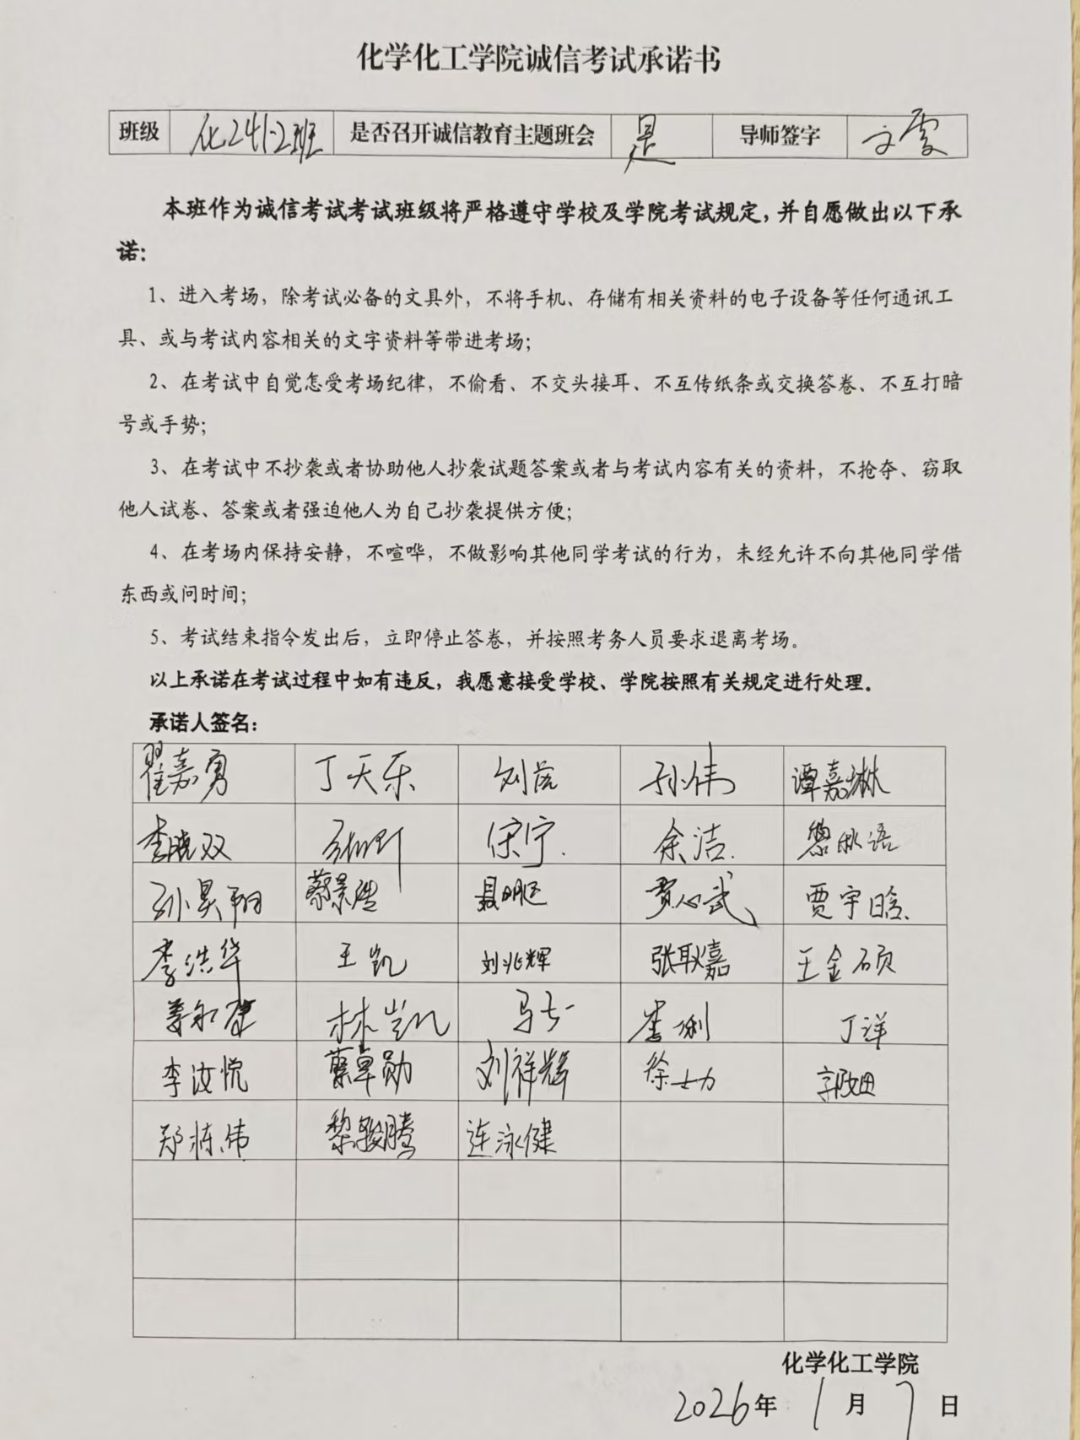 化学化工学院诚信考试承诺书
班级 化241-2班 是否召开诚信教育主题班会 是 导师签字
本班作为诚信考试考试班级将严格遵守学校及学院考试规定，并自愿做出以下承
诺：
1、进入考场，除考试必备的文具外，不将手机、存储有相关资料的电子设备等任何通讯工
具、或与考试内容相关的文字资料等带进考场；
2、在考试中自觉怎受考场纪律，不偷看、不交头接耳、不互传纸条或交换答卷、不互打暗
号或手势；
3、在考试中不抄袭或者协助他人抄袭试题答案或者与考试内容有关的资料，不抢夺、窃取
他人试卷、答案或者强迫他人为自己抄袭提供方便；
4、在考场内保持安静，不喧哗，不做影响其他同学考试的行为，未经允许不向其他同学借
东西或问时间；
5、考试结束指令发出后，立即停止答卷，并按照考务人员要求退离考场。
以上承诺在考试过程中如有违反，我愿意接受学校、学院按照有关规定进行处理。
承诺人签名：
翟嘉勇 丁天乐 孙伟 谭嘉琳
李晓双 宋宁 余洁 黎秋语
孙昊翔 蔡景浩 贾宇晗
李浩华 王凯 刘兆辉 张耿嘉 王金硕
林岂凡 丁洋
李汝悦 蔡卓勋 刘祥辉 徐士力
郑栋伟 黎骏腾 连泳健
化学化工学院
2026年 1月 7日